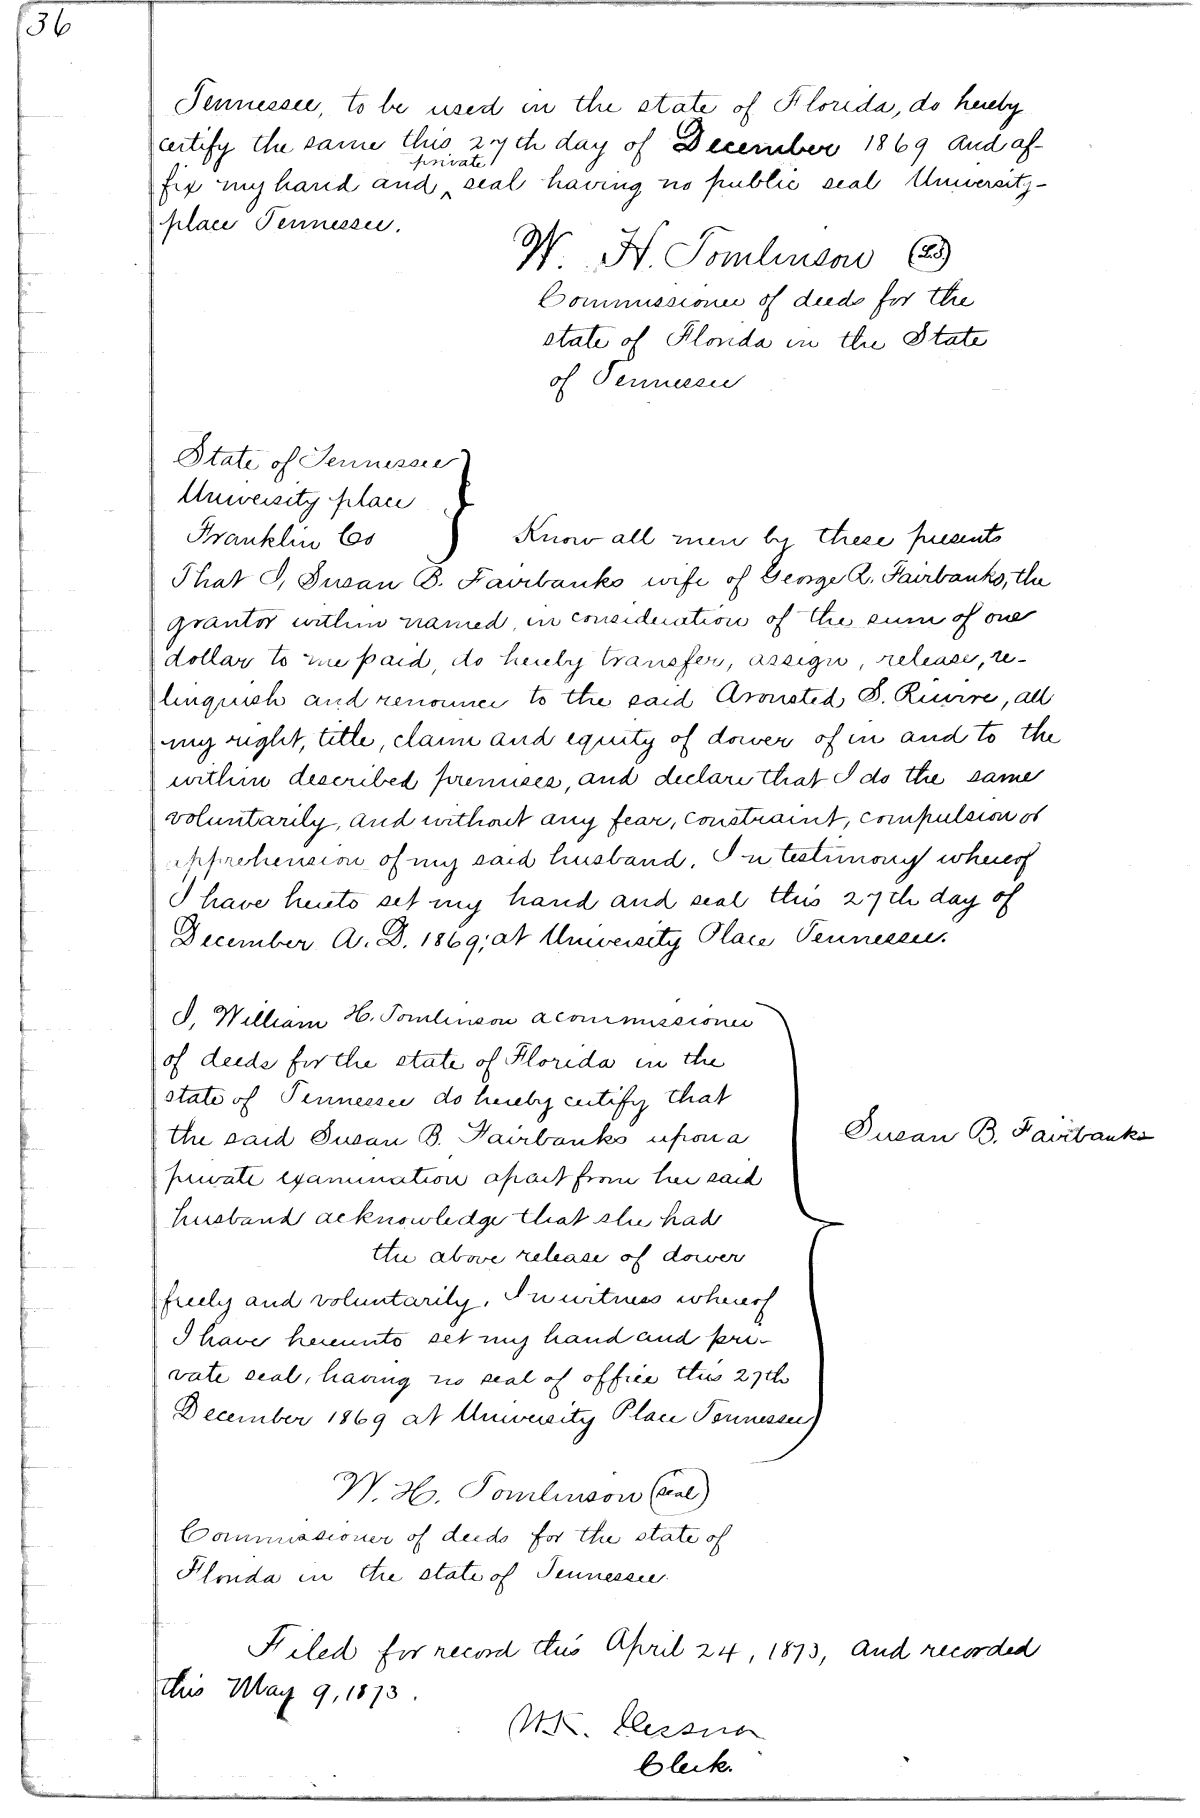 36
Tennessee, to be used in the state of Florida, do hereby
certify the same this 27th day of December 1869 and af-
private
fix my hand and ‸ seal having no public seal University-
place Tennessee.
W. H. Tomlinson (L.S)
Commissioner of deeds for the
state of Florida in the State
of Tennessee
State of Tennessee
University place
Franklin Co } Know all men by these presents
That I, Susan B. Fairbanks wife of George R. Fairbanks, the
grantor within named, in consideration of the sum of one
dollar to me paid, do hereby transfer, assign, release, re-
linquish and renounce to the said Arousted S. , all
my right, title, claim and equity of dower of in and to the
within described premises, and declare that I do the same
voluntarily, and without any fear, constraint, compulsion or
apprehension of my said husband. In testimony whereof
I have hereto set my hand and seal this 27th day of
December A. D. 1869; at University Place Tennessee.
I, William H. Tomlinson a commissioner
of deeds for the state of Florida in the
state of Tennessee do hereby certify that
the said Susan B. Fairbanks upon a
Susan B. Fairbanks
private examination apart from her said
husband acknowledge that she had
the above release of dower
freely and voluntarily. In witness whereof
I have hereunto set my hand and pri-
vate seal, having no seal of office this 27th
December 1869 at University Place Tennessee
W. H. Tomlinson (seal)
Commissioner of deeds for the state of
Florida in the state of Tennessee.
Filed for record this April 24, 1873, and recorded
this May 9, 1873.
W.K. Cessna
Clerk.